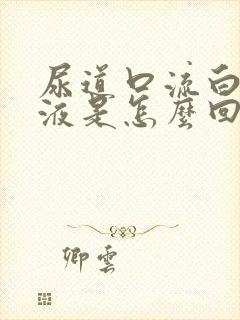 尿道口流白
液是怎麼回
卿雲